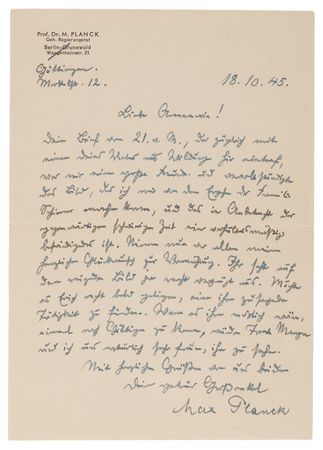 Prof. Dr. M. PLANCK
Geh. Regierungsrat
Berlin-Grunewald
Wangenheimstr. 21
Göttingen.
Merkelstr. 12.
18.10.45.
Liebe
Dein Brief vom 21. v. M., der zugleich mit
einem Deines Vaters aus Salzburg hier eintraf,
war mir eine große Freude und vervollständigte
das Bild, das ich mir von dem Ergehen der Familie
machen kann, und das in Anbetracht der
gegenwärtigen schwierigen Zeit ein verhältnismäßig
befriedigendes ist. Nimm nun vor allem meinen
herzlichen Glückwunsch zur Vermählung. Ihr seht auf
dem Bild ja recht vergnügt aus. Möchte
es Erich recht bald gelingen, eine ihm zusagende
Tätigkeit zu finden. Wenn es ihm möglich wäre,
einmal nach Göttingen zu kommen, würden Tante
und ich uns natürlich sehr freuen, ihn zu sehen.
Mit herzlichen Grüßen an Euch beide
Dein Großonkel
Max Planck